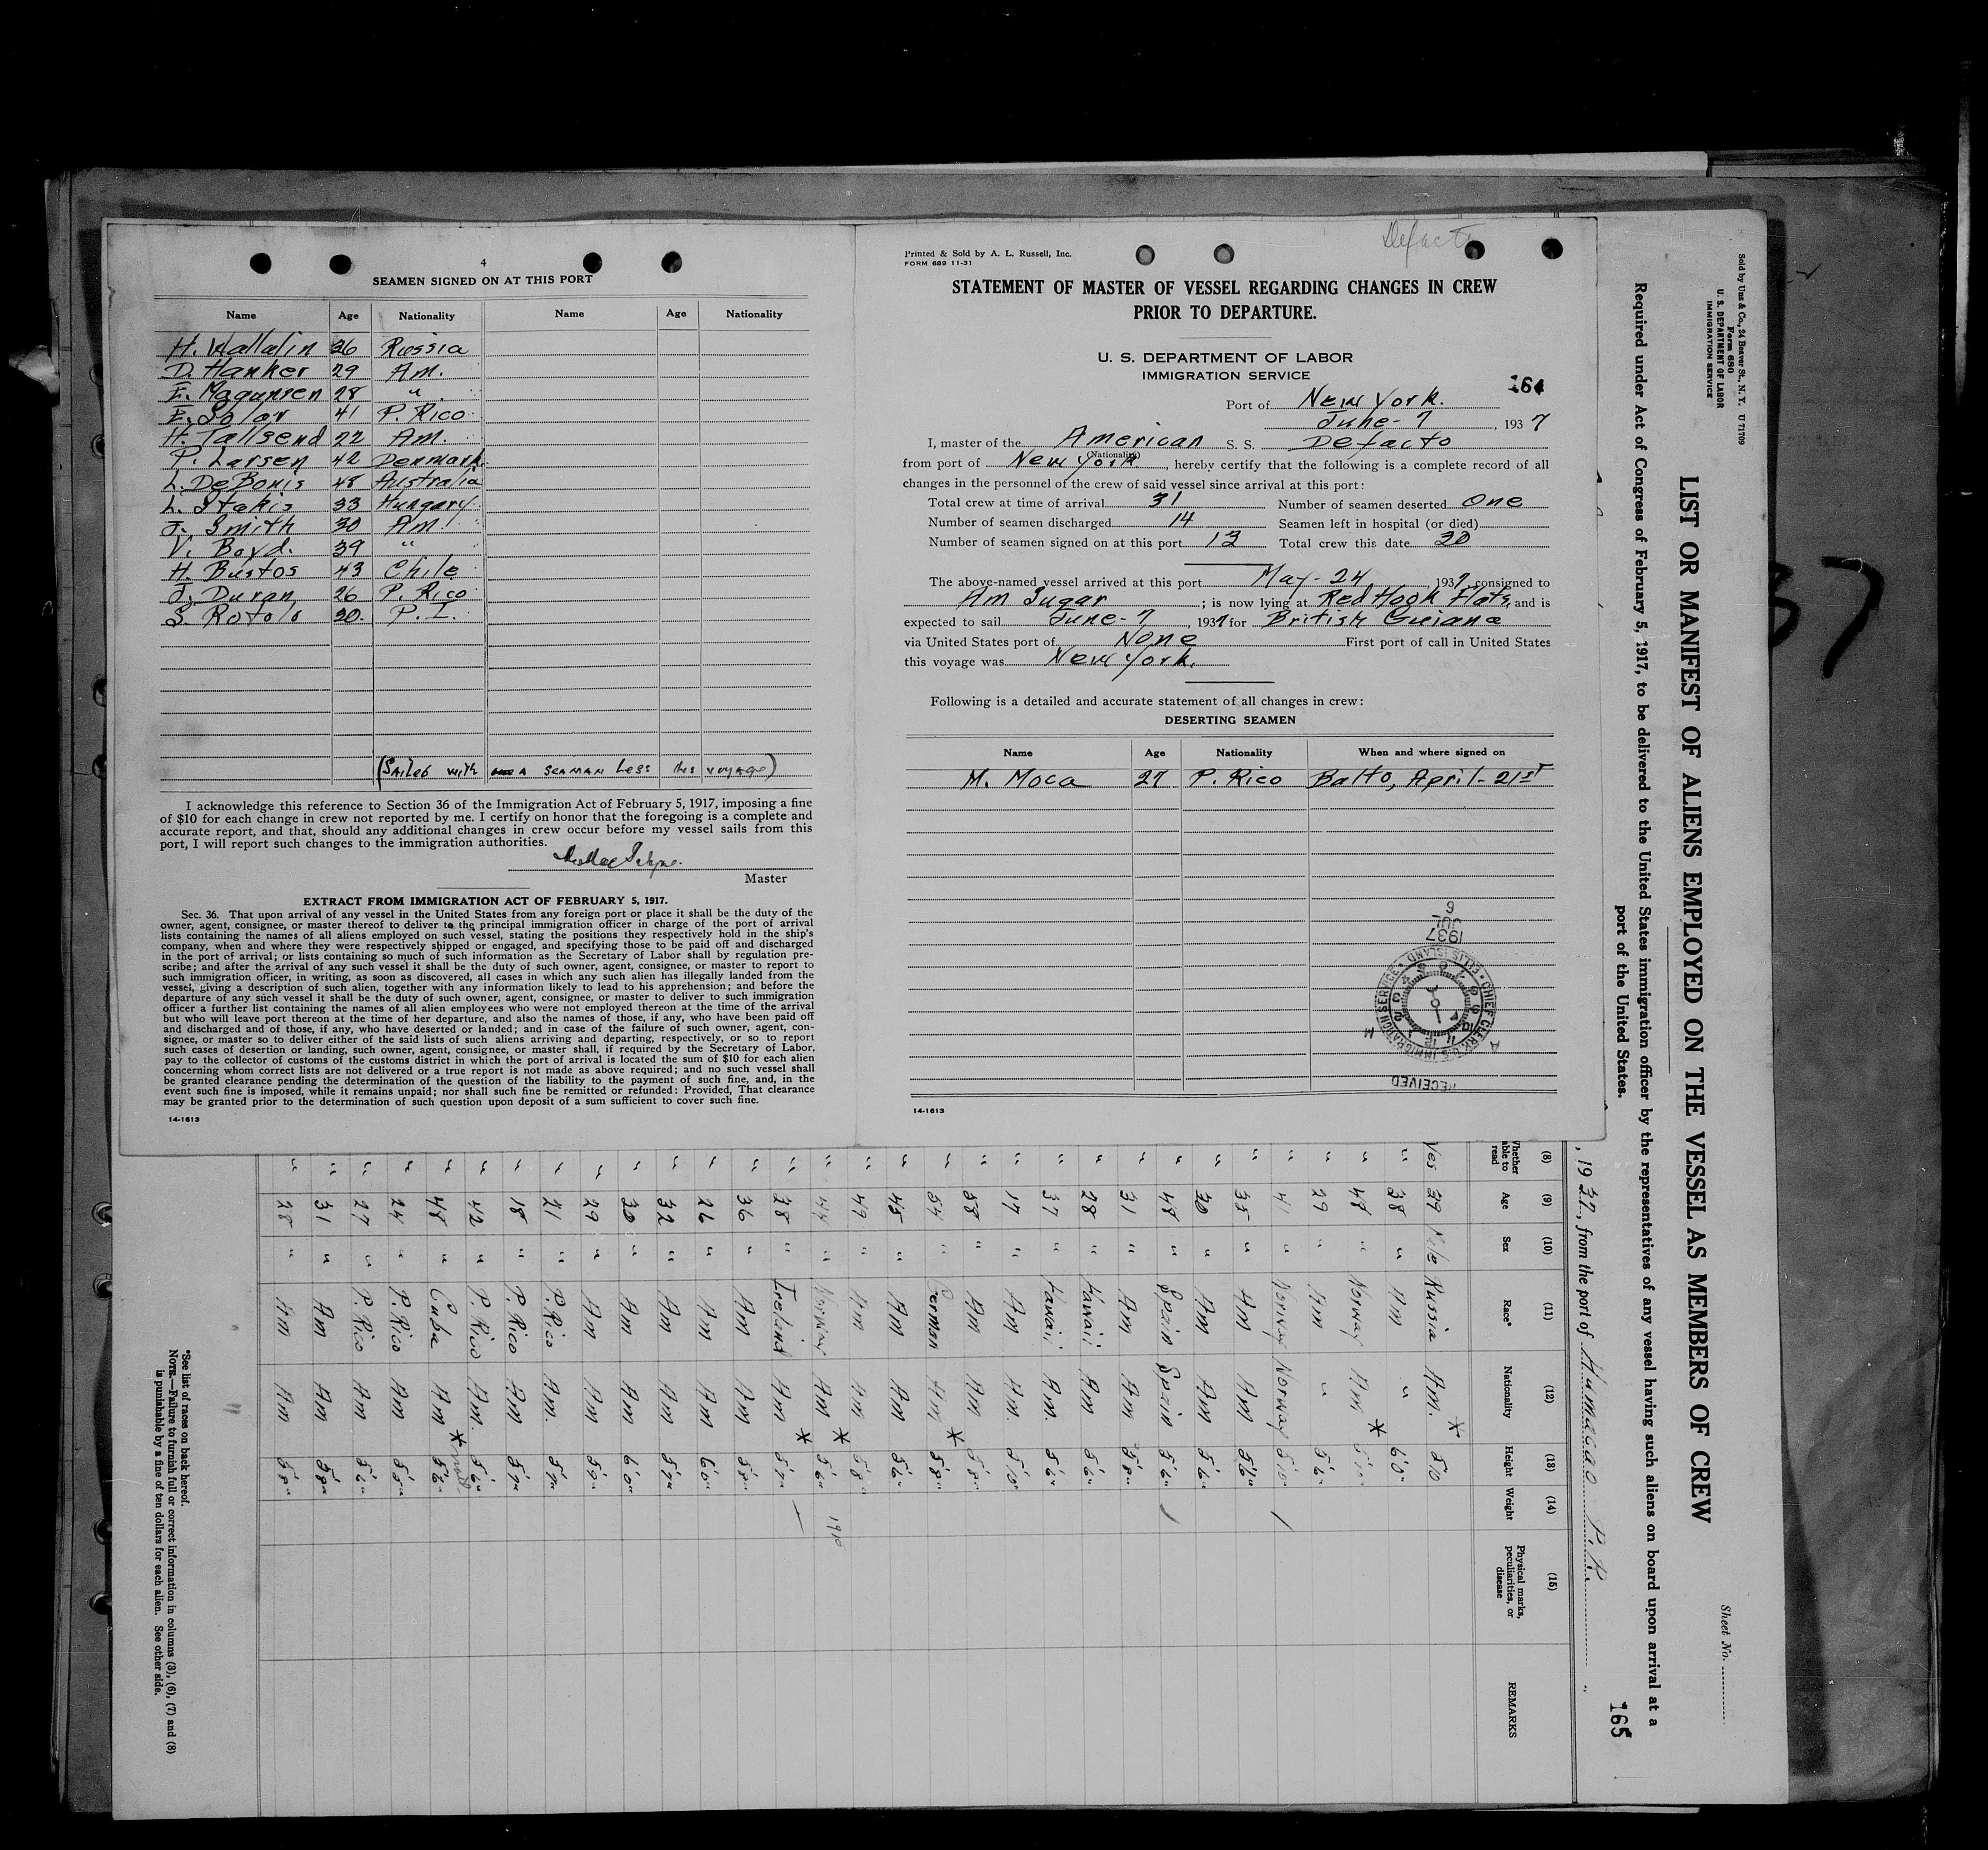 4
SEAMEN SIGNED ON AT THIS PORT
Name Age Nationality Name Age Nationality
H. Wallalin 36 Russia
D. Hanker 29 Am.
E. Magunsen 28 "
E. Solar 41 P. Rico
H. Tallsend 22 Am.
P. Larsen 42 Denmark
L. DeBonis 48 Australia
L. Stakis 33 Hungary
J. Smith 30 Am.
V. Boyd. 39 "
H. Bustos 43 Chile
J. Duran 26 P. Rico
S. Rotolo 30. P. I.
(Sailed with a seaman less this voyage)
I acknowledge this reference to Section 36 of the Immigration Act of February 5, 1917, imposing a fine
of $10 for each change in crew not reported by me. I certify on honor that the foregoing is a complete and
accurate report, and that, should any additional changes in crew occur before my vessel sails from this
port, I will report such changes to the immigration authorities.
Master
EXTRACT FROM IMMIGRATION ACT OF FEBRUARY 5, 1917.
Sec. 36. That upon arrival of any vessel in the United States from any foreign port or place it shall be the duty of the
owner, agent, consignee, or master thereof to deliver to the principal immigration officer in charge of the port of arrival
lists containing the names of all aliens employed on such vessel, stating the positions they respectively hold in the ship's
company, when and where they were respectively shipped or engaged, and specifying those to be paid off and discharged
in the port of arrival; or lists containing so much of such information as the Secretary of Labor shall by regulation pre-
scribe; and after the arrival of any such vessel it shall be the duty of such owner, agent, consignee, or master to report to
such immigration officer, in writing, as soon as discovered, all cases in which any such alien has illegally landed from the
vessel, giving a description of such alien, together with any information likely to lead to his apprehension; and before the
departure of any such vessel it shall be the duty of such owner, agent, consignee, or master to deliver to such immigration
officer a further list containing the names of all alien employees who were not employed thereon at the time of the arrival
but who will leave port thereon at the time of her departure, and also the names of those, if any, who have been paid off
and discharged and of those, if any, who have deserted or landed; and in case of the failure of such owner, agent, con-
signee, or master so to deliver either of the said lists of such aliens arriving and departing, respectively, or so to report
such cases of desertion or landing, such owner, agent, consignee, or master shall, if required by the Secretary of Labor,
pay to the collector of customs of the customs district in which the port of arrival is located the sum of $10 for each alien
concerning whom correct lists are not delivered or a true report is not made as above required; and no such vessel shall
be granted clearance pending the determination of the question of the liability to the payment of such fine, and, in the
event such fine is imposed, while it remains unpaid; nor shall such fine be remitted or refunded: Provided, That clearance
may be granted prior to the determination of such question upon deposit of a sum sufficient to cover such fine.
14-1613
Defacto
Printed & Sold by A. L. Russell, Inc.
FORM 689 11-31
STATEMENT OF MASTER OF VESSEL REGARDING CHANGES IN CREW
PRIOR TO DEPARTURE.
U. S. DEPARTMENT OF LABOR
IMMIGRATION SERVICE
164
Port of New York.
June-7, 1937
I, master of the American S. S. Defacto
(Nationality)
from port of New York, hereby certify that the following is a complete record of all
changes in the personnel of the crew of said vessel since arrival at this port:
Total crew at time of arrival 31 Number of seamen deserted One
Number of seamen discharged 14 Seamen left in hospital (or died)
Number of seamen signed on at this port 13 Total crew this date 30
The above-named vessel arrived at this port May-24, 1937, consigned to
Am Sugar; is now lying at Red Hook Flats, and is
expected to sail June-7, 1937 for British Guiana
via United States port of None First port of call in United States
this voyage was New York.
Following is a detailed and accurate statement of all changes in crew:
DESERTING SEAMEN
Name Age Nationality When and where signed on
M. Moca 27 P. Rico Balto, April-21st
RECEIVED
CHIEF CLERK, U.S. IMMIGRATION SERVICE • ELLIS ISLAND •
A M
1937 JUL 6
14-1613
Sold by Unz & Co., 24 Beaver St., N. Y. U 71709
Form 680
U. S. DEPARTMENT OF LABOR
IMMIGRATION SERVICE
Sheet No.
LIST OR MANIFEST OF ALIENS EMPLOYED ON THE VESSEL AS MEMBERS OF CREW
Required under Act of Congress of February 5, 1917, to be delivered to the United States immigration officer by the representatives of any vessel having such aliens on board upon arrival at a
port of the United States.
165
, 1937, from the port of Humacao P.R.
(8) (9) (10) (11) (12) (13) (14) (15)
Whether able to read Age Sex Race* Nationality Height Weight Physical marks, peculiarities, or disease REMARKS
Yes 39 Male Russia Am. * 5'10
" 38 " Am " 6'0"
" 48 " Norway Am * 5'11"
" 29 " Am " 5'6"
" 41 " Norway Norway 5'10"
" 35 " Am Am 5'6"
" 30 " Am Am 5'6"
" 48 " Spain Spain 5'6"
" 31 " Am Am 5'8"
" 28 " Hawaii Am 5'6"
" 37 " Hawaii Am. 5'6"
" 17 " Am Am. 5'10"
" 38 " Am Am 5'8"
" 54 " German Am * 5'8"
" 45 " Am Am 5'6"
" 49 " Am Am 5'8"
" 44 " Norway Am * 5'6" 1910
" 38 " Ireland Am * 5'7"
" 36 " Am Am 5'8"
" 26 " Am Am 6'0"
" 32 " Am Am 5'7"
" 30 " Am Am 6'0"
" 29 " Am Am 5'9"
" 21 " P. Rico Am. 5'7"
" 18 " P. Rico Am 5'7"
" 42 " P. Rico Am. 5'6"
" 48 " Cuba Am * 5'6"
" 24 " P. Rico Am 5'5"
" 27 " P. Rico Am 5'6"
" 31 " Am Am 5'8"
" 28 " Am Am 5'8"
*See list of races on back hereof.
NOTE.—Failure to furnish full or correct information in columns (3), (6), (7) and (8)
is punishable by a fine of ten dollars for each alien. See other side.
37